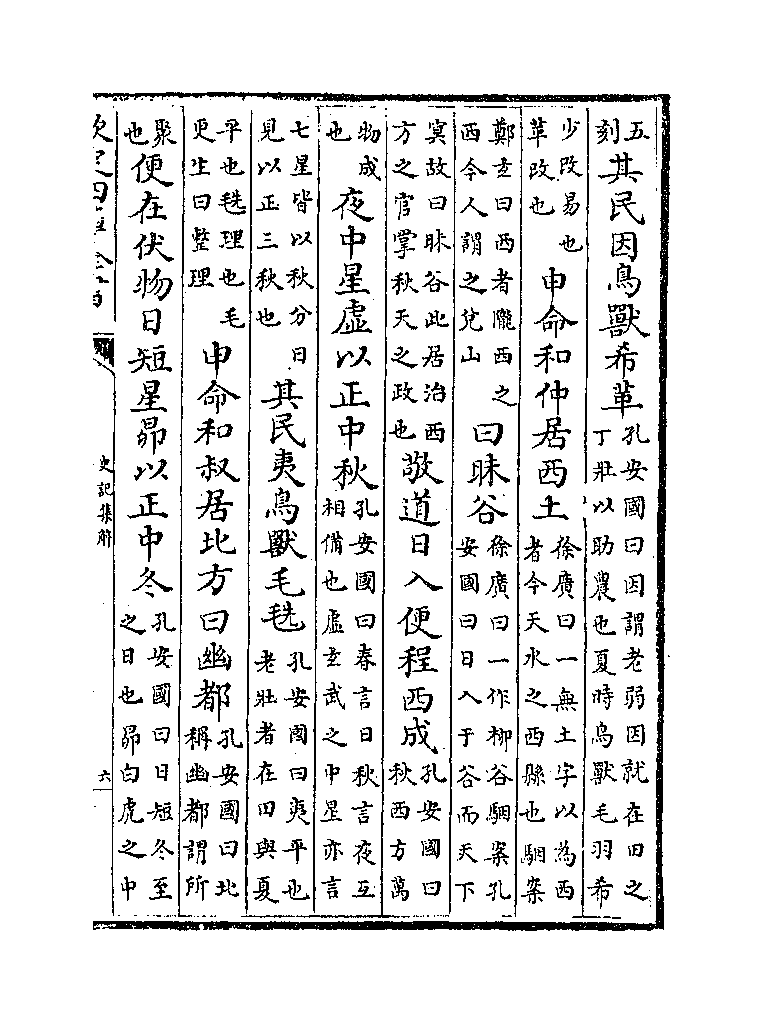 五刻其民因鳥獸希革孔安國曰因謂老弱因就在田之丁壯以助農也夏時鳥獸毛羽希
少改易也革改也申命和仲居西土徐廣曰一無土字以為西者今天水之西縣也駰案
鄭玄曰西者隴西之西今人謂之兌山曰昧谷徐廣曰一作柳谷駰案孔安國曰日入于谷而天下
冥故曰昧谷此居治西方之官掌秋天之政也敬道日入便程西成孔安國曰秋西方萬
物成也夜中星虛以正中秋孔安國曰春言日秋言夜互相備也虛玄武之中星亦言
七星皆以秋分日見以正三秋也其民夷鳥獸毛毨孔安國曰夷平也老壯者在田與夏
平也毨理也毛更生曰整理申命和叔居北方曰幽都孔安國曰北稱幽都謂所
聚也便在伏物日短星昴以正中冬孔安國曰日短冬至之日也昴白虎之中
欽定四庫全書
史記集解
六